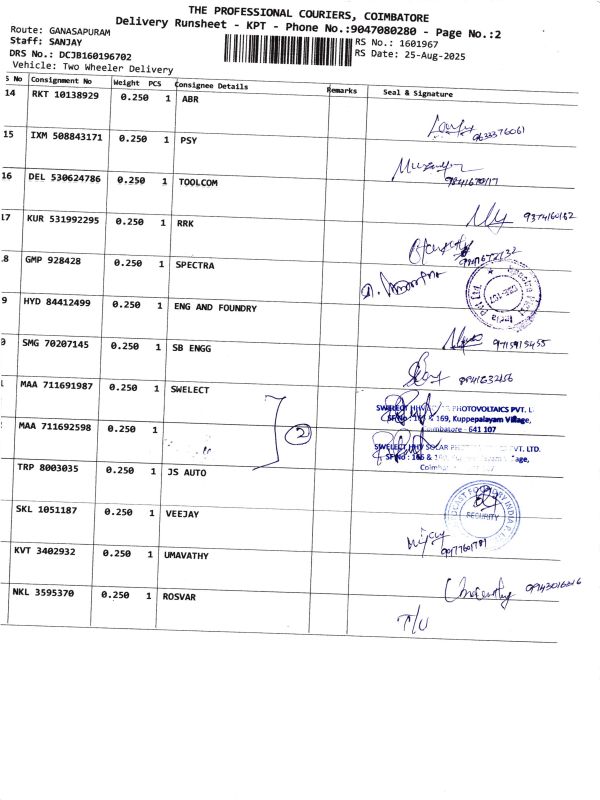 THE PROFESSIONAL COURIERS, COIMBATORE
Delivery Runsheet - KPT - Phone No.:9047080280 - Page No.:2
Route: GANASAPURAM
Staff: SANJAY
RS No.: 1601967
DRS No.: DCJB160196702
RS Date: 25-Aug-2025
Vehicle: Two Wheeler Delivery
s No Consignment No Weight PCS Consignee Details Remarks Seal & Signature
14 RKT 10138929 0.250 1 ABR
15 IXM 508843171 0.250 1 PSY
16 DEL 530624786 0.250 1 TOOLCOM
17 KUR 531992295 0.250 1 RRK 9374160132
18 GMP 928428 0.250 1 SPECTRA
9 HYD 84412499 0.250 1 ENG AND FOUNDRY
0 SMG 70207145 0.250 1 SB ENGG 9715915455
1 MAA 711691987 0.250 1 SWELECT
SWELECT HHV SOLAR PHOTOVOLTAICS PVT. L
& 169, Kuppepalayam Village,
Coimbatore - 641 107
MAA 711692598 0.250 1
2
SWELECT HHV SOLAR PVT. LTD.
TRP 8003035 0.250 1 JS AUTO
SECURITY
SKL 1051187 0.250 1 VEEJAY
KVT 3402932 0.250 1 UMAVATHY
NKL 3595370 0.250 1 ROSVAR
T/U